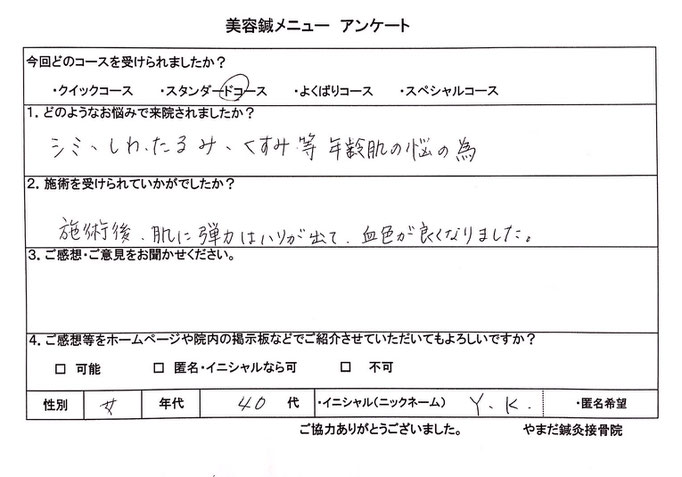 美容鍼メニュー　アンケート
今回どのコースを受けられましたか？
・クイックコース　・スタンダードコース　・よくばりコース　・スペシャルコース
1．どのようなお悩みで来院されましたか？
シミ、しわ、たるみ、くすみ等 年齢肌の悩の為
2．施術を受けられていかがでしたか？
施術後、肌に弾力はハリが出て、血色が良くなりました。
3．ご感想・ご意見をお聞かせください。
4．ご感想等をホームページや院内の掲示板などでご紹介させていただいてもよろしいですか？
□ 可能　□ 匿名・イニシャルなら可　□ 不可
性別　女　年代　40 代　・イニシャル（ニックネーム）　Y．K．　・匿名希望
ご協力ありがとうございました。　やまだ鍼灸接骨院